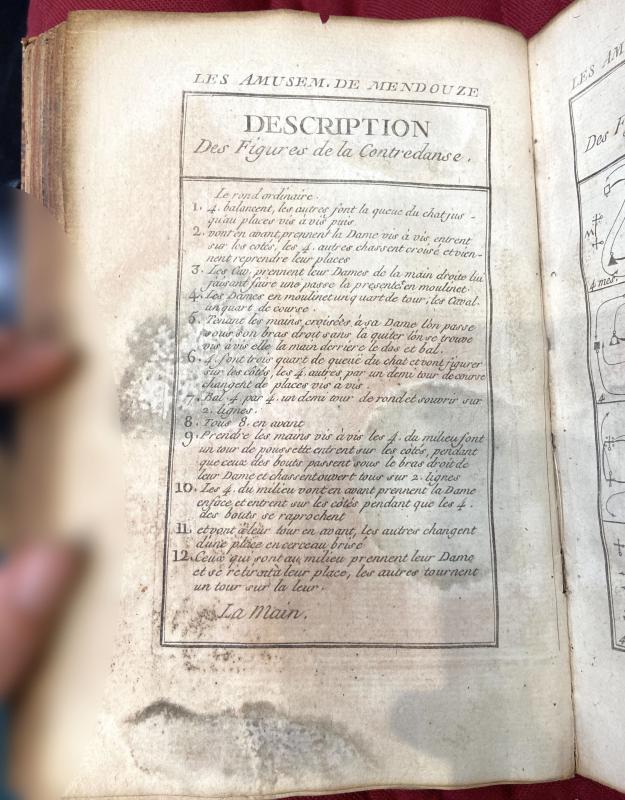 LES AMUSEM. DE MENDOUZE
DESCRIPTION
Des Figures de la Contredanse.
Le rond ordinaire.
1. 4. balancent, les autres font la queue du chat jus-
qu'au places vis à vis puis
2. vont en avant, prennent la Dame vis à vis, entrent
sur les cotés, les 4. autres chassent croisé et vien-
nent reprendre leur places
3. Les Cav. prennent leur Dames de la main droite lui
faisant faire une passe la presente en moulinet.
4. Les Dames en moulinet un quart de tour, les Caval.
un quart de course.
5. Tenant les mains croisées à sa Dame l'on passe
sous son bras droit sans la quiter l'on se trouve
vis à vis elle la main derriere le dos et bal.
6. 4. font trois quart de queue du chat et vont figurer
sur les côtés, les 4. autres par un demi tour de course
changent de places vis à vis.
7. Bal. 4 par 4. un demi tour de rond et s'ouvrir sur
2. lignes.
8. Tous 8. en avant
9. Prendre les mains vis à vis les 4. du milieu font
un tour de poussette entrent sur les cotés, pendant
que ceux des bouts passent sous le bras droit de
leur Dame et chassent ouvert tous sur 2. lignes
10. Les 4. du milieu vont en avant prennent la Dame
enface et entrent sur les côtés pendant que les 4.
des bouts se raprochent
11. et vont à leur tour en avant, les autres changent
d'une place en cerceau brisé
12. Ceux qui sont au milieu prennent leur Dame
et se retirent à leur place, les autres tournent
un tour sur la leur.
La Main.
LES AM
Des F
4 mes.
4